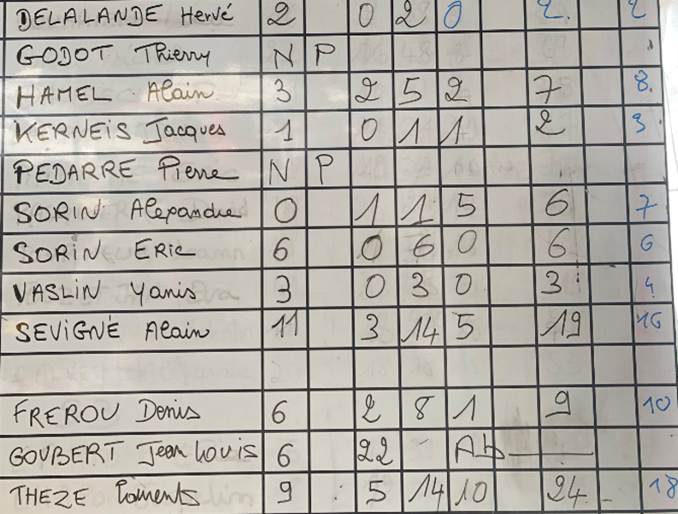 DELALANDE Hervé 2 0 2 0 2 2
GODOT Thierry N P
HAMEL Alain 3 2 5 2 7 8
KERNEIS Jacques 1 0 1 1 2 3
PEDARRE Pierre N P
SORIN Alexandre 0 1 1 5 6 7
SORIN Eric 6 0 6 0 6 6
VASLIN Yanis 3 0 3 0 3 4
SEVIGNÉ Alain 11 3 14 5 19 16
FREROU Denis 6 2 8 1 9 10
GOUBERT Jean Louis 6 22 - Ab
THEZE 9 5 14 10 24 18